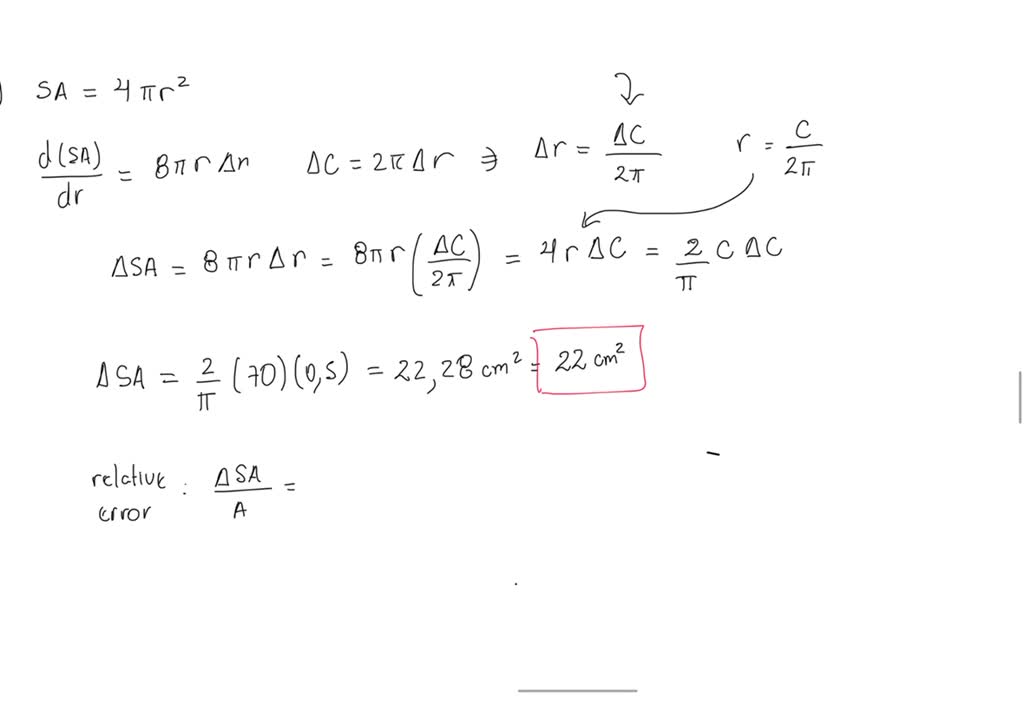 ) SA = 4πr²
d(SA)/dr = 8πr Δr ΔC = 2πΔr ∋ Δr = ΔC/2π r = C/2π
ΔSA = 8πrΔr = 8πr(ΔC/2π) = 4rΔC = 2/π C ΔC
ΔSA = 2/π (70)(0,5) = 22,28 cm² = 22 cm²
relative error : ΔSA/A =